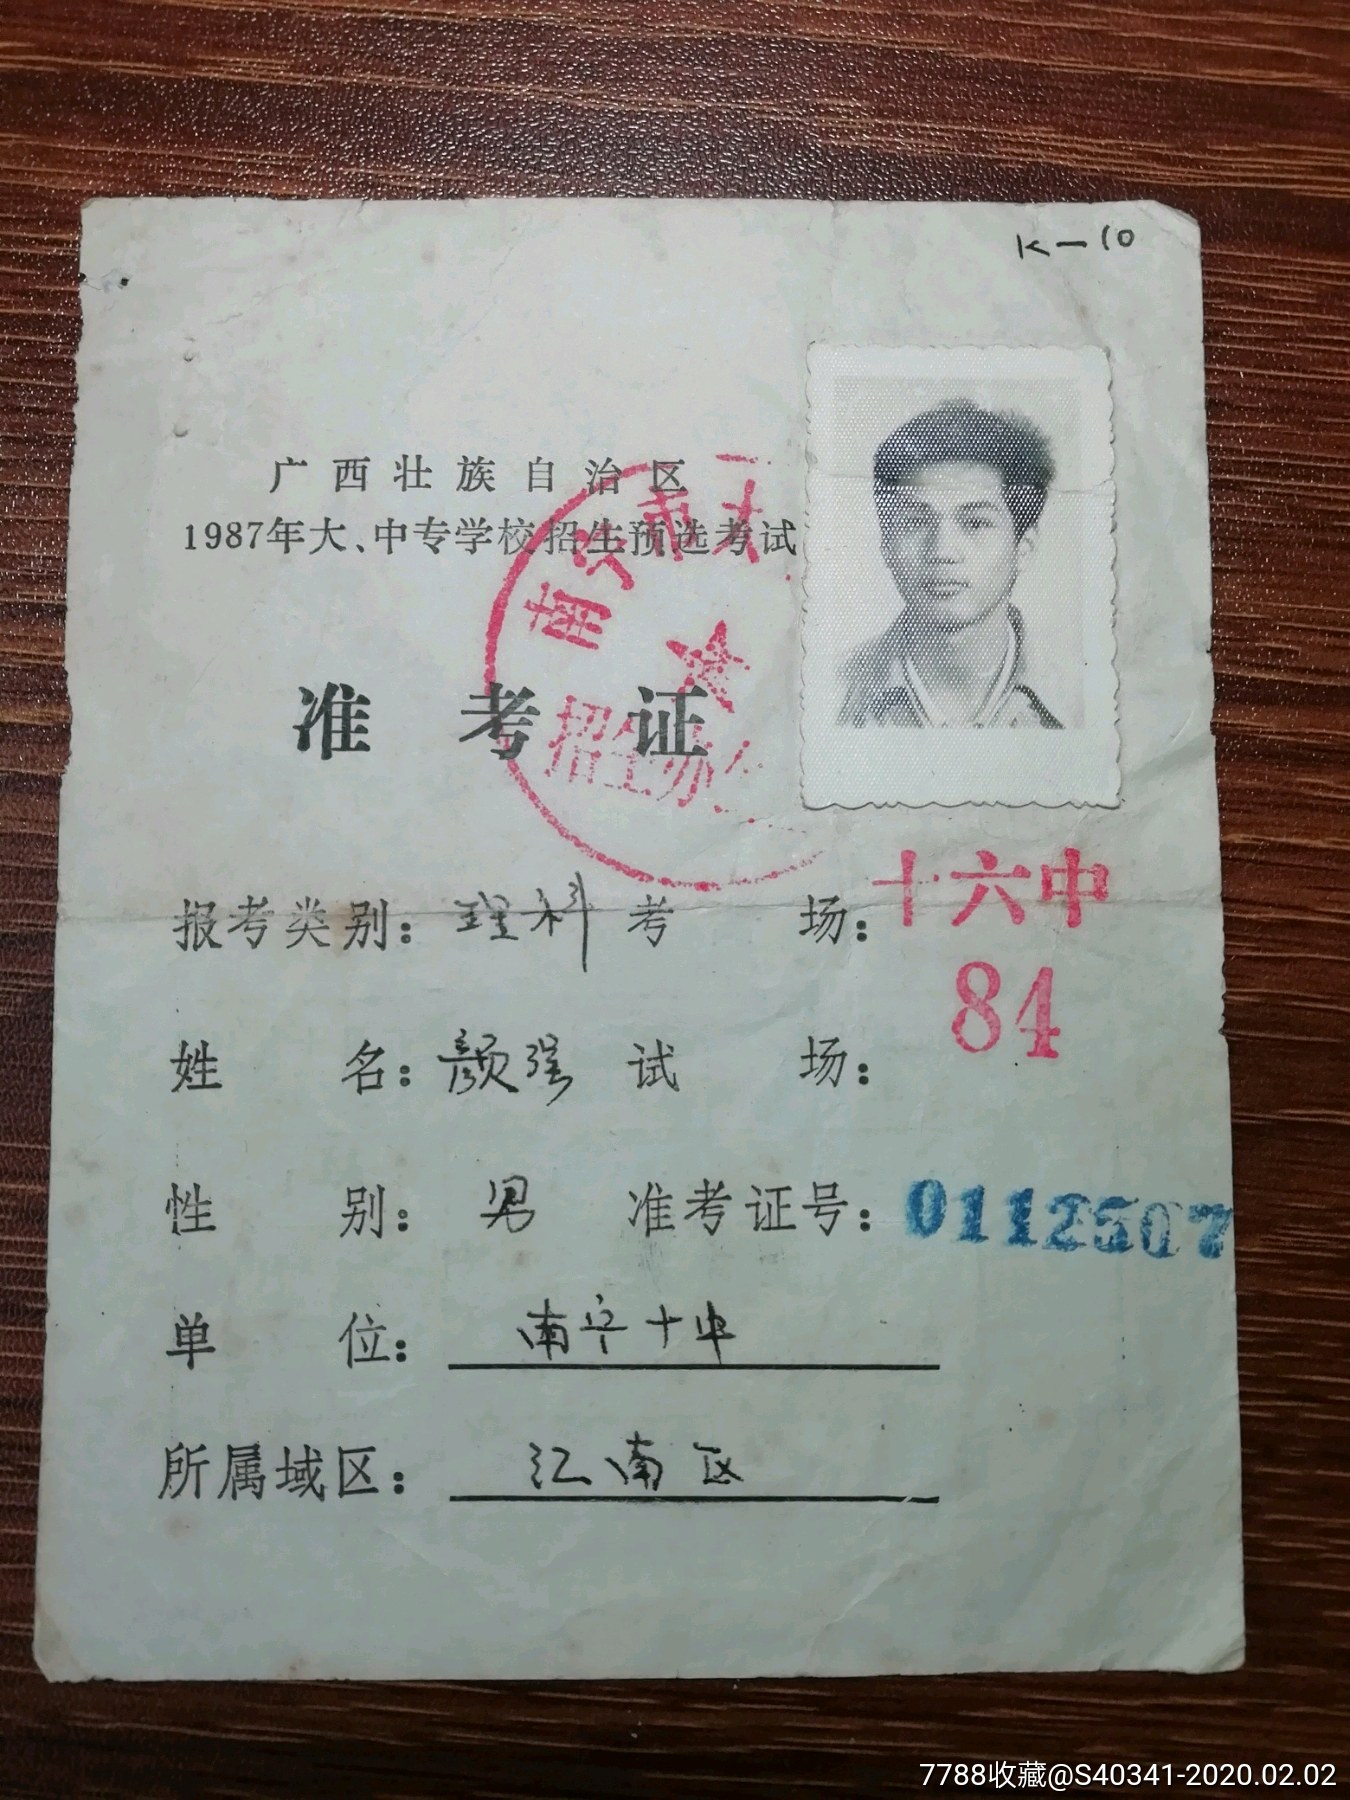 K—10
广西壮族自治区
1987年大、中专学校招生预选考试
南宁市大
招生办
准考证
报考类别：理科 考场：十六中
姓名：颜强 试场：84
性别：男 准考证号：0112507
单位：南宁十中
所属域区：江南区
7788收藏@S40341-2020.02.02